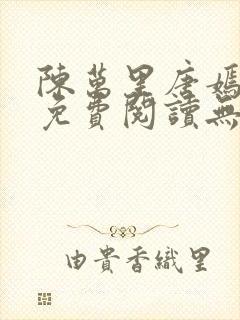 陳萬里唐嫣
免費閱讀無
由貴香織里